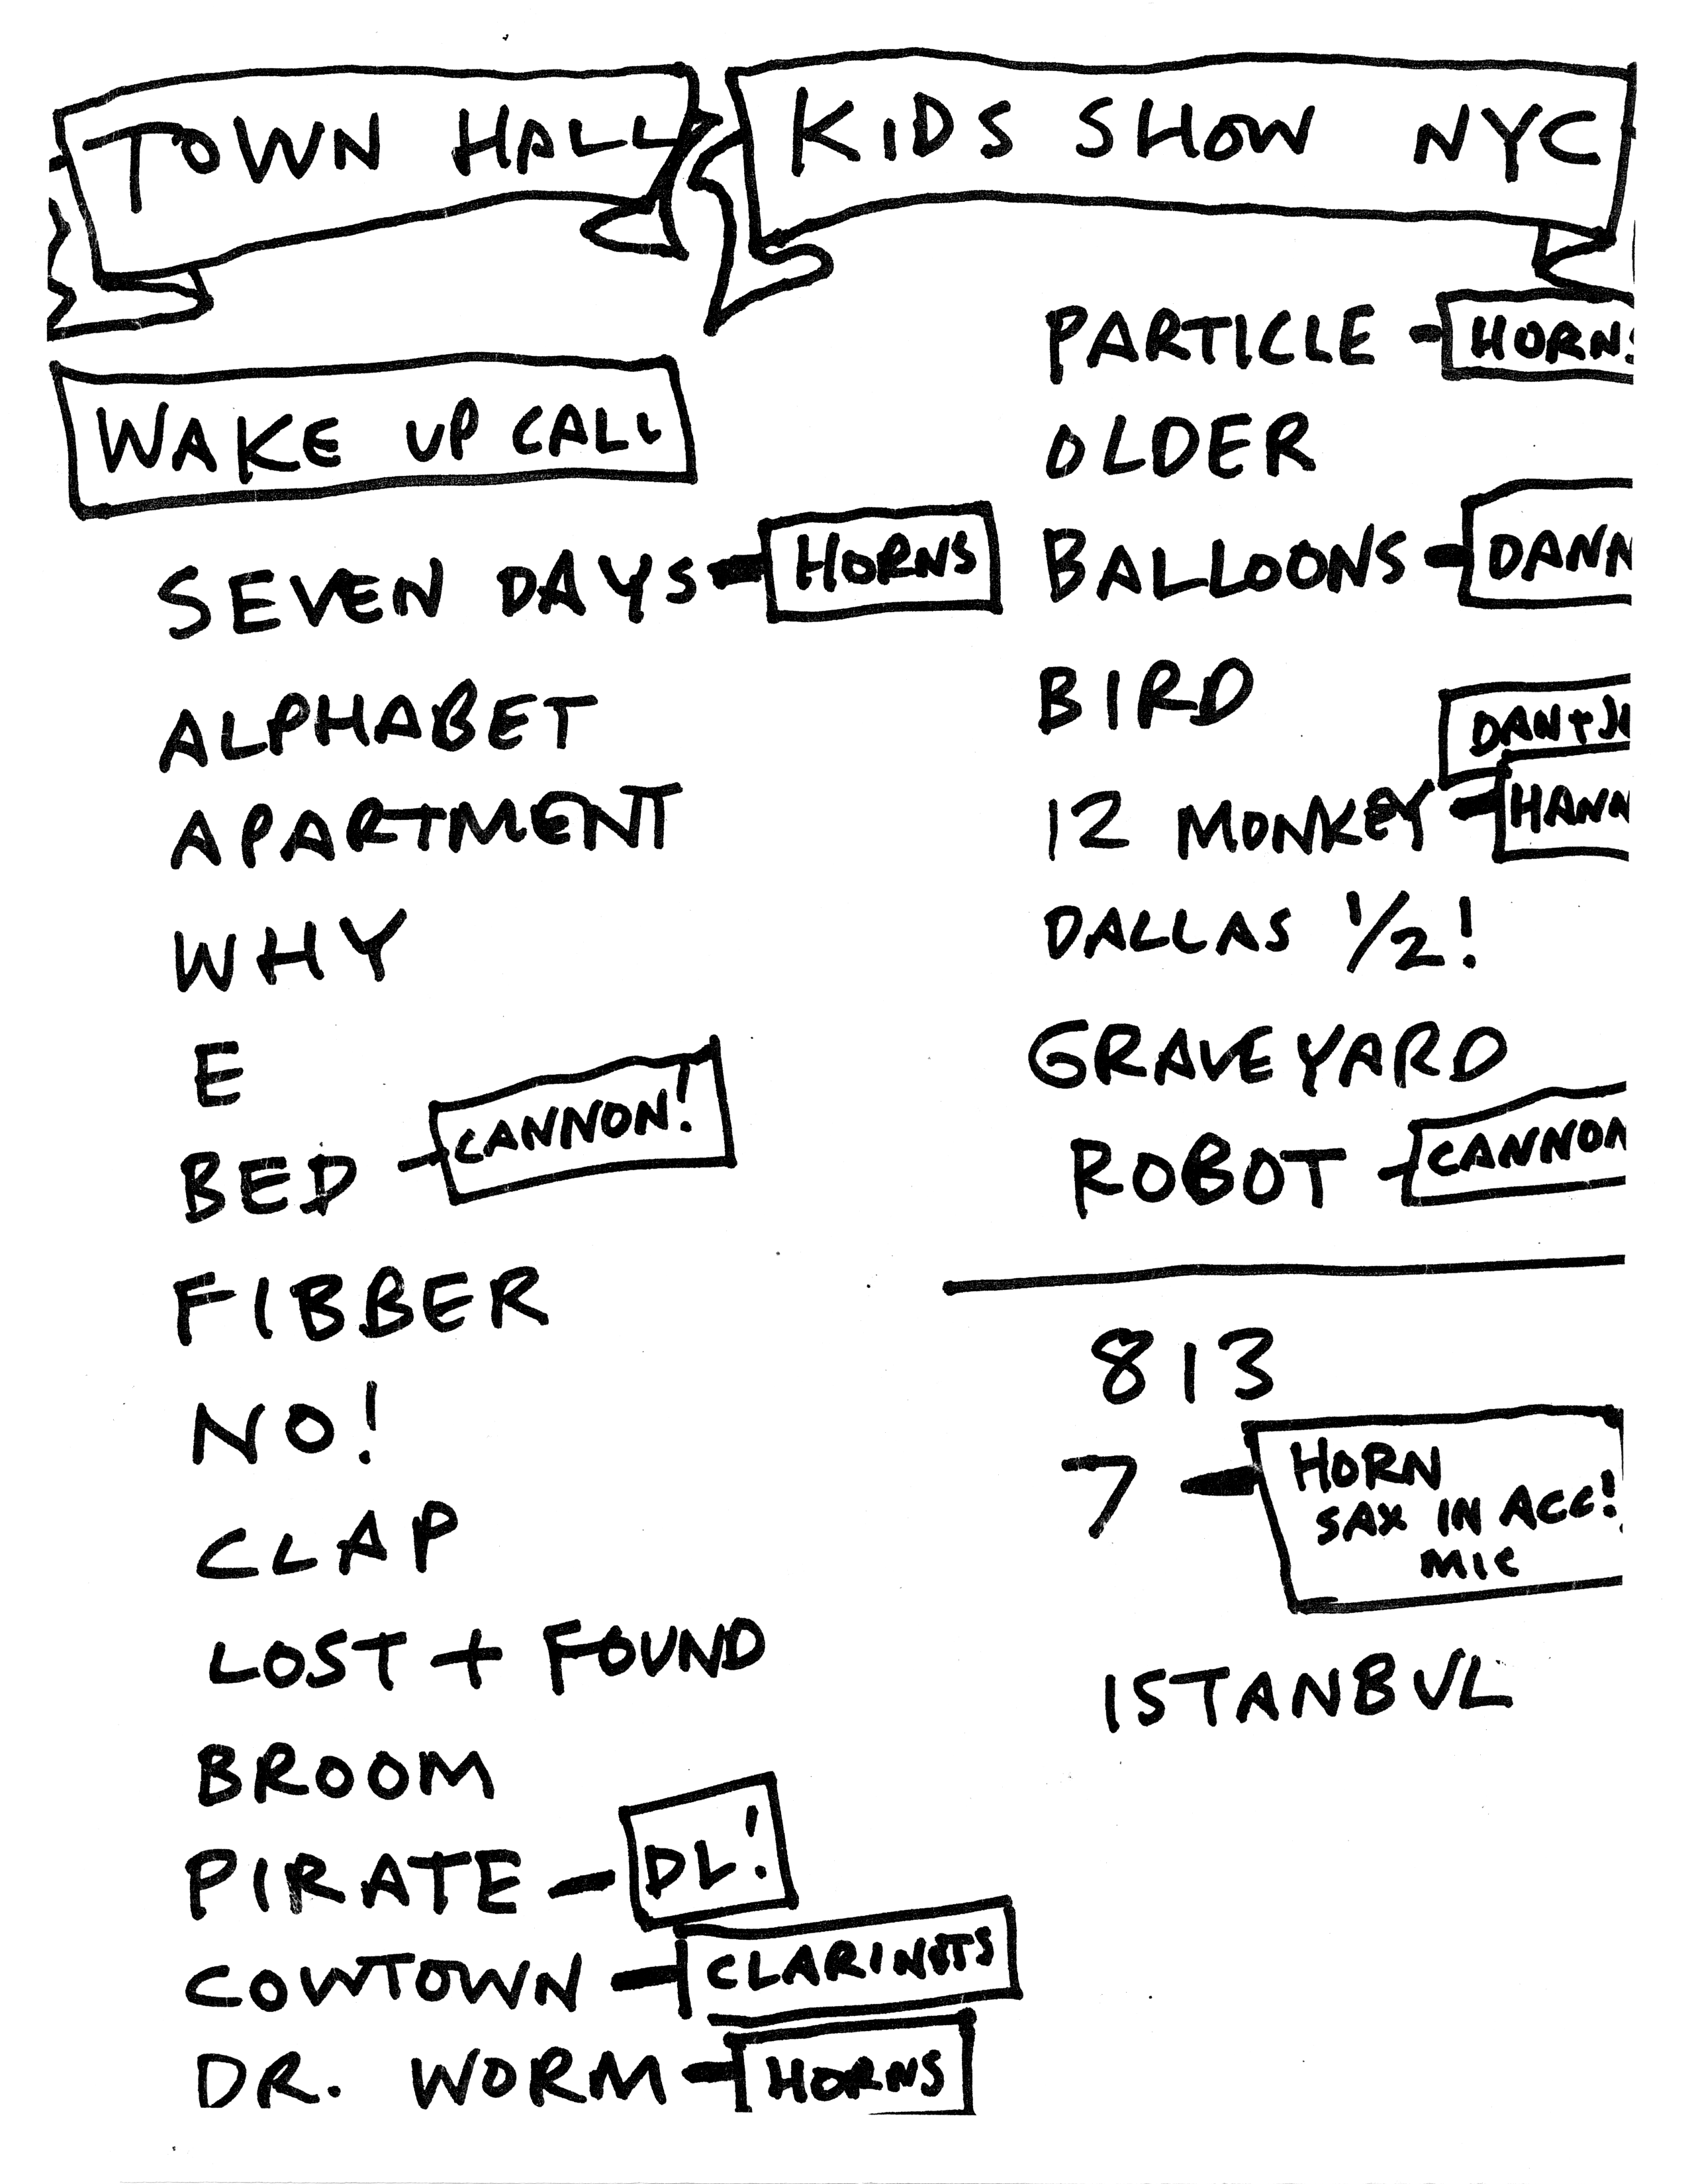 TOWN HALL KIDS SHOW NYC
WAKE UP CALL
SEVEN DAYS - HORNS
ALPHABET
APARTMENT
WHY
E
BED - CANNON!
FIBBER
NO!
CLAP
LOST + FOUND
BROOM
PIRATE - DL!
COWTOWN - CLARINETS
DR. WORM - HORNS
PARTICLE - HORNS
OLDER
BALLOONS - DANN
BIRD
DAN +
12 MONKEY - HANN
DALLAS 1/2!
GRAVEYARD
ROBOT - CANNON
813
7 - HORN
SAX IN ACC!
MIC
ISTANBUL